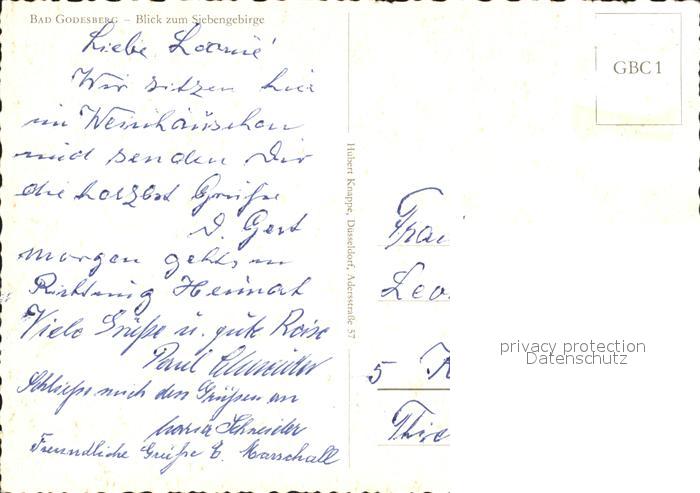 BAD GODESBERG – Blick zum Siebengebirge
Liebe
Wir sitzen hier
im Weinhäuschen
und senden Dir
die herzbst Grüße
D. Gert
morgen gehts in
Richtung Heimat
Viele Grüße u. gute Reise
Paul Schneider
Schließe mich den Grüßen an
Maria Schneider
Freundliche Grüße E. Marschall
Hubert Knappe, Düsseldorf, Adersstraße 57
GBC 1
Frau
Leo.
5 K
privacy protection
Datenschutz